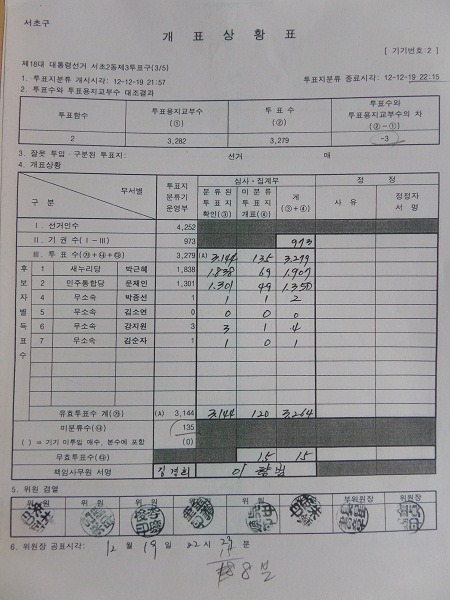 서초구
개 표 상 황 표
[ 기기번호:2 ]
제18대 대통령선거 서초2동제3투표구(3/5)
1. 투표지분류 개시시각: 12-12-19 21:57 투표지분류 종료시각: 12-12-19 22:15
2. 투표수와 투표용지교부수 대조결과
투표함수 투표용지교부수 (①) 투 표 수 (②) 투표수와 투표용지교부수의 차 (②-①)
2 3,282 3,279 -3
3. 잘못 투입·구분된 투표지: 선거 매
4. 개표상황
구 분 부서별 투표지 분류기 운영부 심사·집계부 정 정
분 류 된 투 표 지 확인(③) 미 분 류 투 표 지 개표(④) 계 (③+④) 사 유 정정자 서 명
Ⅰ. 선거인수 4,252
Ⅱ. 기 권 수(Ⅰ-Ⅲ) 973 973
Ⅲ. 투 표 수 3,279 (A) 3,144 135 3,279
후보자별득표수
1 새누리당 박근혜 1,838 1,838 69 1,907
2 민주통합당 문재인 1,301 1,301 49 1,350
4 무소속 박종선 1 1 1 2
5 무소속 김소연 0 0 0 0
6 무소속 강지원 3 3 1 4
7 무소속 김순자 1 1 0 1
유효투표수 계 (A) 3,144 3,144 120 3,264
미분류수 135
( ) ⇒ 기기 미투입 매수, 본수에 포함 (0)
무효투표수 15 15
책임사무원 서명 김경희
5. 위원 검열
위 원 위 원 위 원 위 원 위 원 위 원 부위원장 위원장
6. 위원장 공표시각: 12 월 19 일 22 시 분